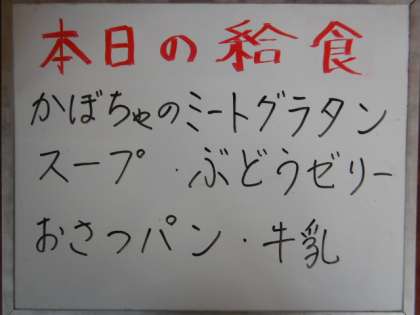 本日の給食
かぼちゃのミートグラタン
スープ・ぶどうゼリー
おさつパン・牛乳